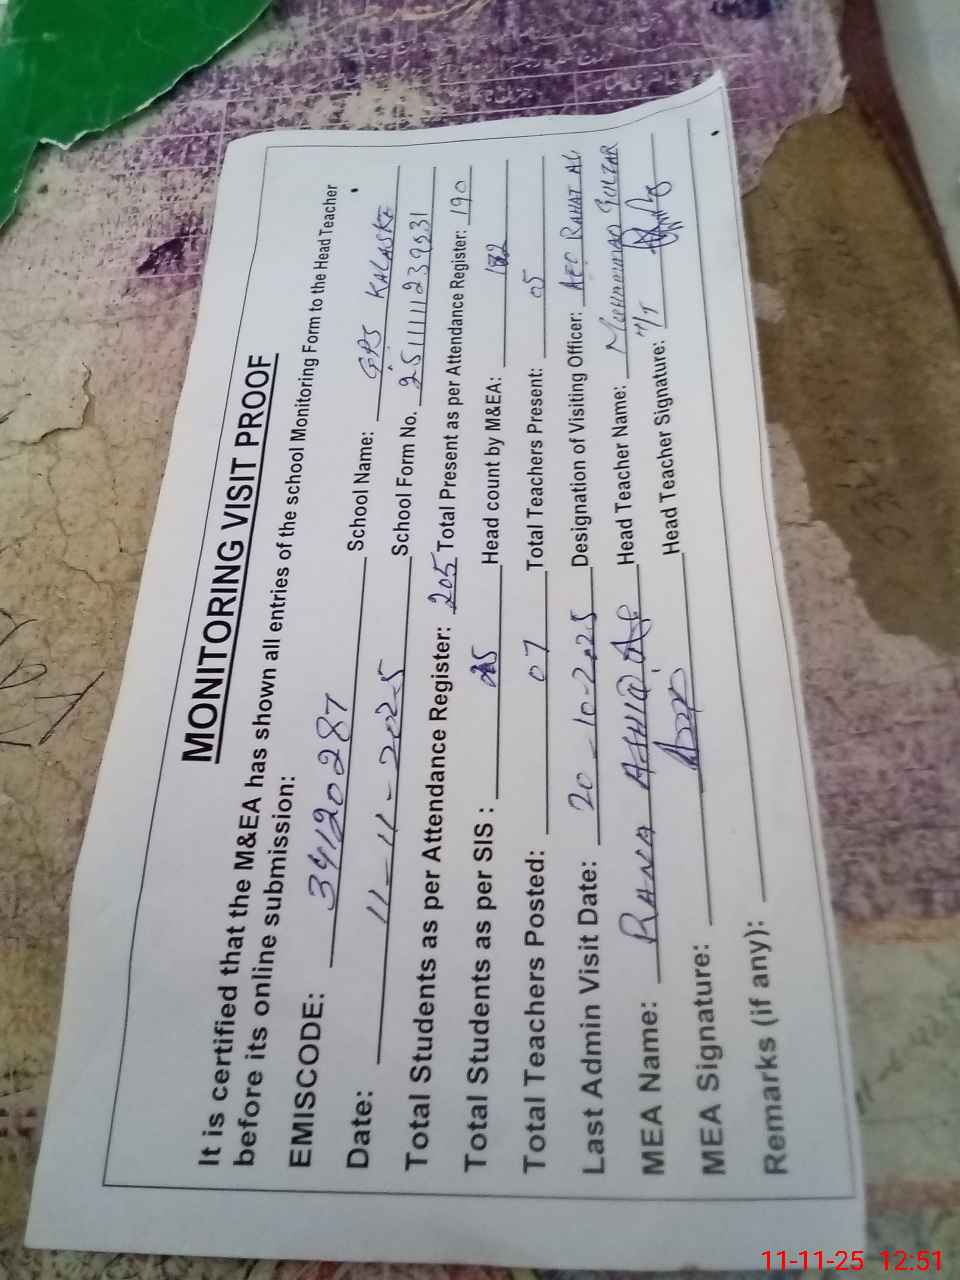 MONITORING VISIT PROOF
It is certified that the M&EA has shown all entries of the school Monitoring Form to the Head Teacher
before its online submission:
EMISCODE: 34120287 School Name: GPS KALASKE
Date: 11-11-2025 School Form No. 2511111239531
Total Students as per Attendance Register: 205 Total Present as per Attendance Register: 190
Total Students as per SIS : Head count by M&EA:
Total Teachers Posted: 07 Total Teachers Present: 05
Last Admin Visit Date: 20-10-2025 Designation of Visiting Officer: AEO RAHAT ALI
MEA Name: RANA Head Teacher Name: MUHAMMAD GULZAR
MEA Signature: Head Teacher Signature:
Remarks (if any):
11-11-25 12:51